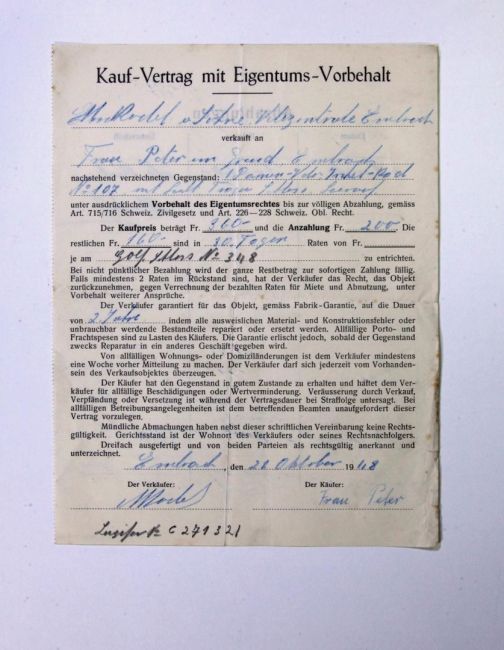 Kauf-Vertrag mit Eigentums-Vorbehalt
Söhne Velozentrale Embrach
verkauft an
Frau Peter im Grund Embrach
nachstehend verzeichneten Gegenstand: 1 Damen-
No 107 mit
unter ausdrücklichem Vorbehalt des Eigentumsrechtes bis zur völligen Abzahlung, gemäss
Art. 715/716 Schweiz. Zivilgesetz und Art. 226—228 Schweiz. Obl. Recht.
Der Kaufpreis beträgt Fr. 360.- und die Anzahlung Fr. 200.- Die
restlichen Fr. 160.- sind in 30 Tagen Raten von Fr.
je am No 348 zu entrichten.
Bei nicht pünktlicher Bezahlung wird der ganze Restbetrag zur sofortigen Zahlung fällig.
Falls mindestens 2 Raten im Rückstand sind, hat der Verkäufer das Recht, das Objekt
zurückzunehmen, gegen Verrechnung der bezahlten Raten für Miete und Abnutzung, unter
Vorbehalt weiterer Ansprüche.
Der Verkäufer garantiert für das Objekt, gemäss Fabrik-Garantie, auf die Dauer
von 2 Jahre indem alle ausweislichen Material- und Konstruktionsfehler oder
unbrauchbar werdende Bestandteile repariert oder ersetzt werden. Allfällige Porto- und
Frachtspesen sind zu Lasten des Käufers. Die Garantie erlischt jedoch, sobald der Gegenstand
zwecks Reparatur in ein anderes Geschäft gegeben wird.
Von allfälligen Wohnungs- oder Domiziländerungen ist dem Verkäufer mindestens
eine Woche vorher Mitteilung zu machen. Der Verkäufer darf sich jederzeit vom Vorhanden-
sein des Verkaufsobjektes überzeugen.
Der Käufer hat den Gegenstand in gutem Zustande zu erhalten und haftet dem Ver-
käufer für allfällige Beschädigungen oder Wertverminderung. Veräusserung durch Verkauf,
Verpfändung oder Versetzung ist während der Vertragsdauer bei Straffolge untersagt. Bei
allfälligen Betreibungsangelegenheiten ist dem betreffenden Beamten unaufgefordert dieser
Vertrag vorzulegen.
Mündliche Abmachungen haben nebst dieser schriftlichen Vereinbarung keine Rechts-
gültigkeit. Gerichtsstand ist der Wohnort des Verkäufers oder seines Rechtsnachfolgers.
Dreifach ausgefertigt und von beiden Parteien als rechtsgültig anerkannt und
unterzeichnet.
Embrach, den 26 Oktober 1948
Der Verkäufer: Der Käufer:
Frau Peter
C 271321